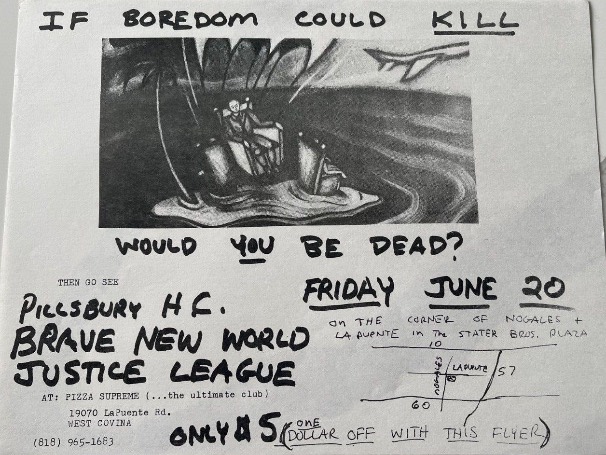 IF BOREDOM COULD KILL
WOULD YOU BE DEAD?
THEN GO SEE
PILLSBURY H.C.
BRAVE NEW WORLD
JUSTICE LEAGUE
AT: PIZZA SUPREME (...the ultimate club)
19070 LaPuente Rd.
WEST COVINA
(818) 965-1683
FRIDAY JUNE 20
ON THE CORNER OF NOGALES +
LA PUENTE in The STATER BROS. PLAZA
10
NOGALES
LAPUENTE
57
60
ONLY $5 (ONE DOLLAR OFF WITH THIS FLYER)